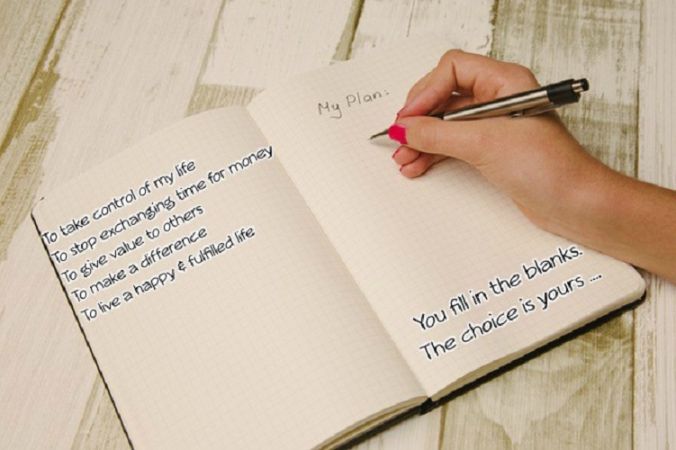 To take control of my life
To stop exchanging time for money
To give value to others
To make a difference
To live a happy & fulfilled life
My Plan:
You fill in the blanks.
The choice is yours ....